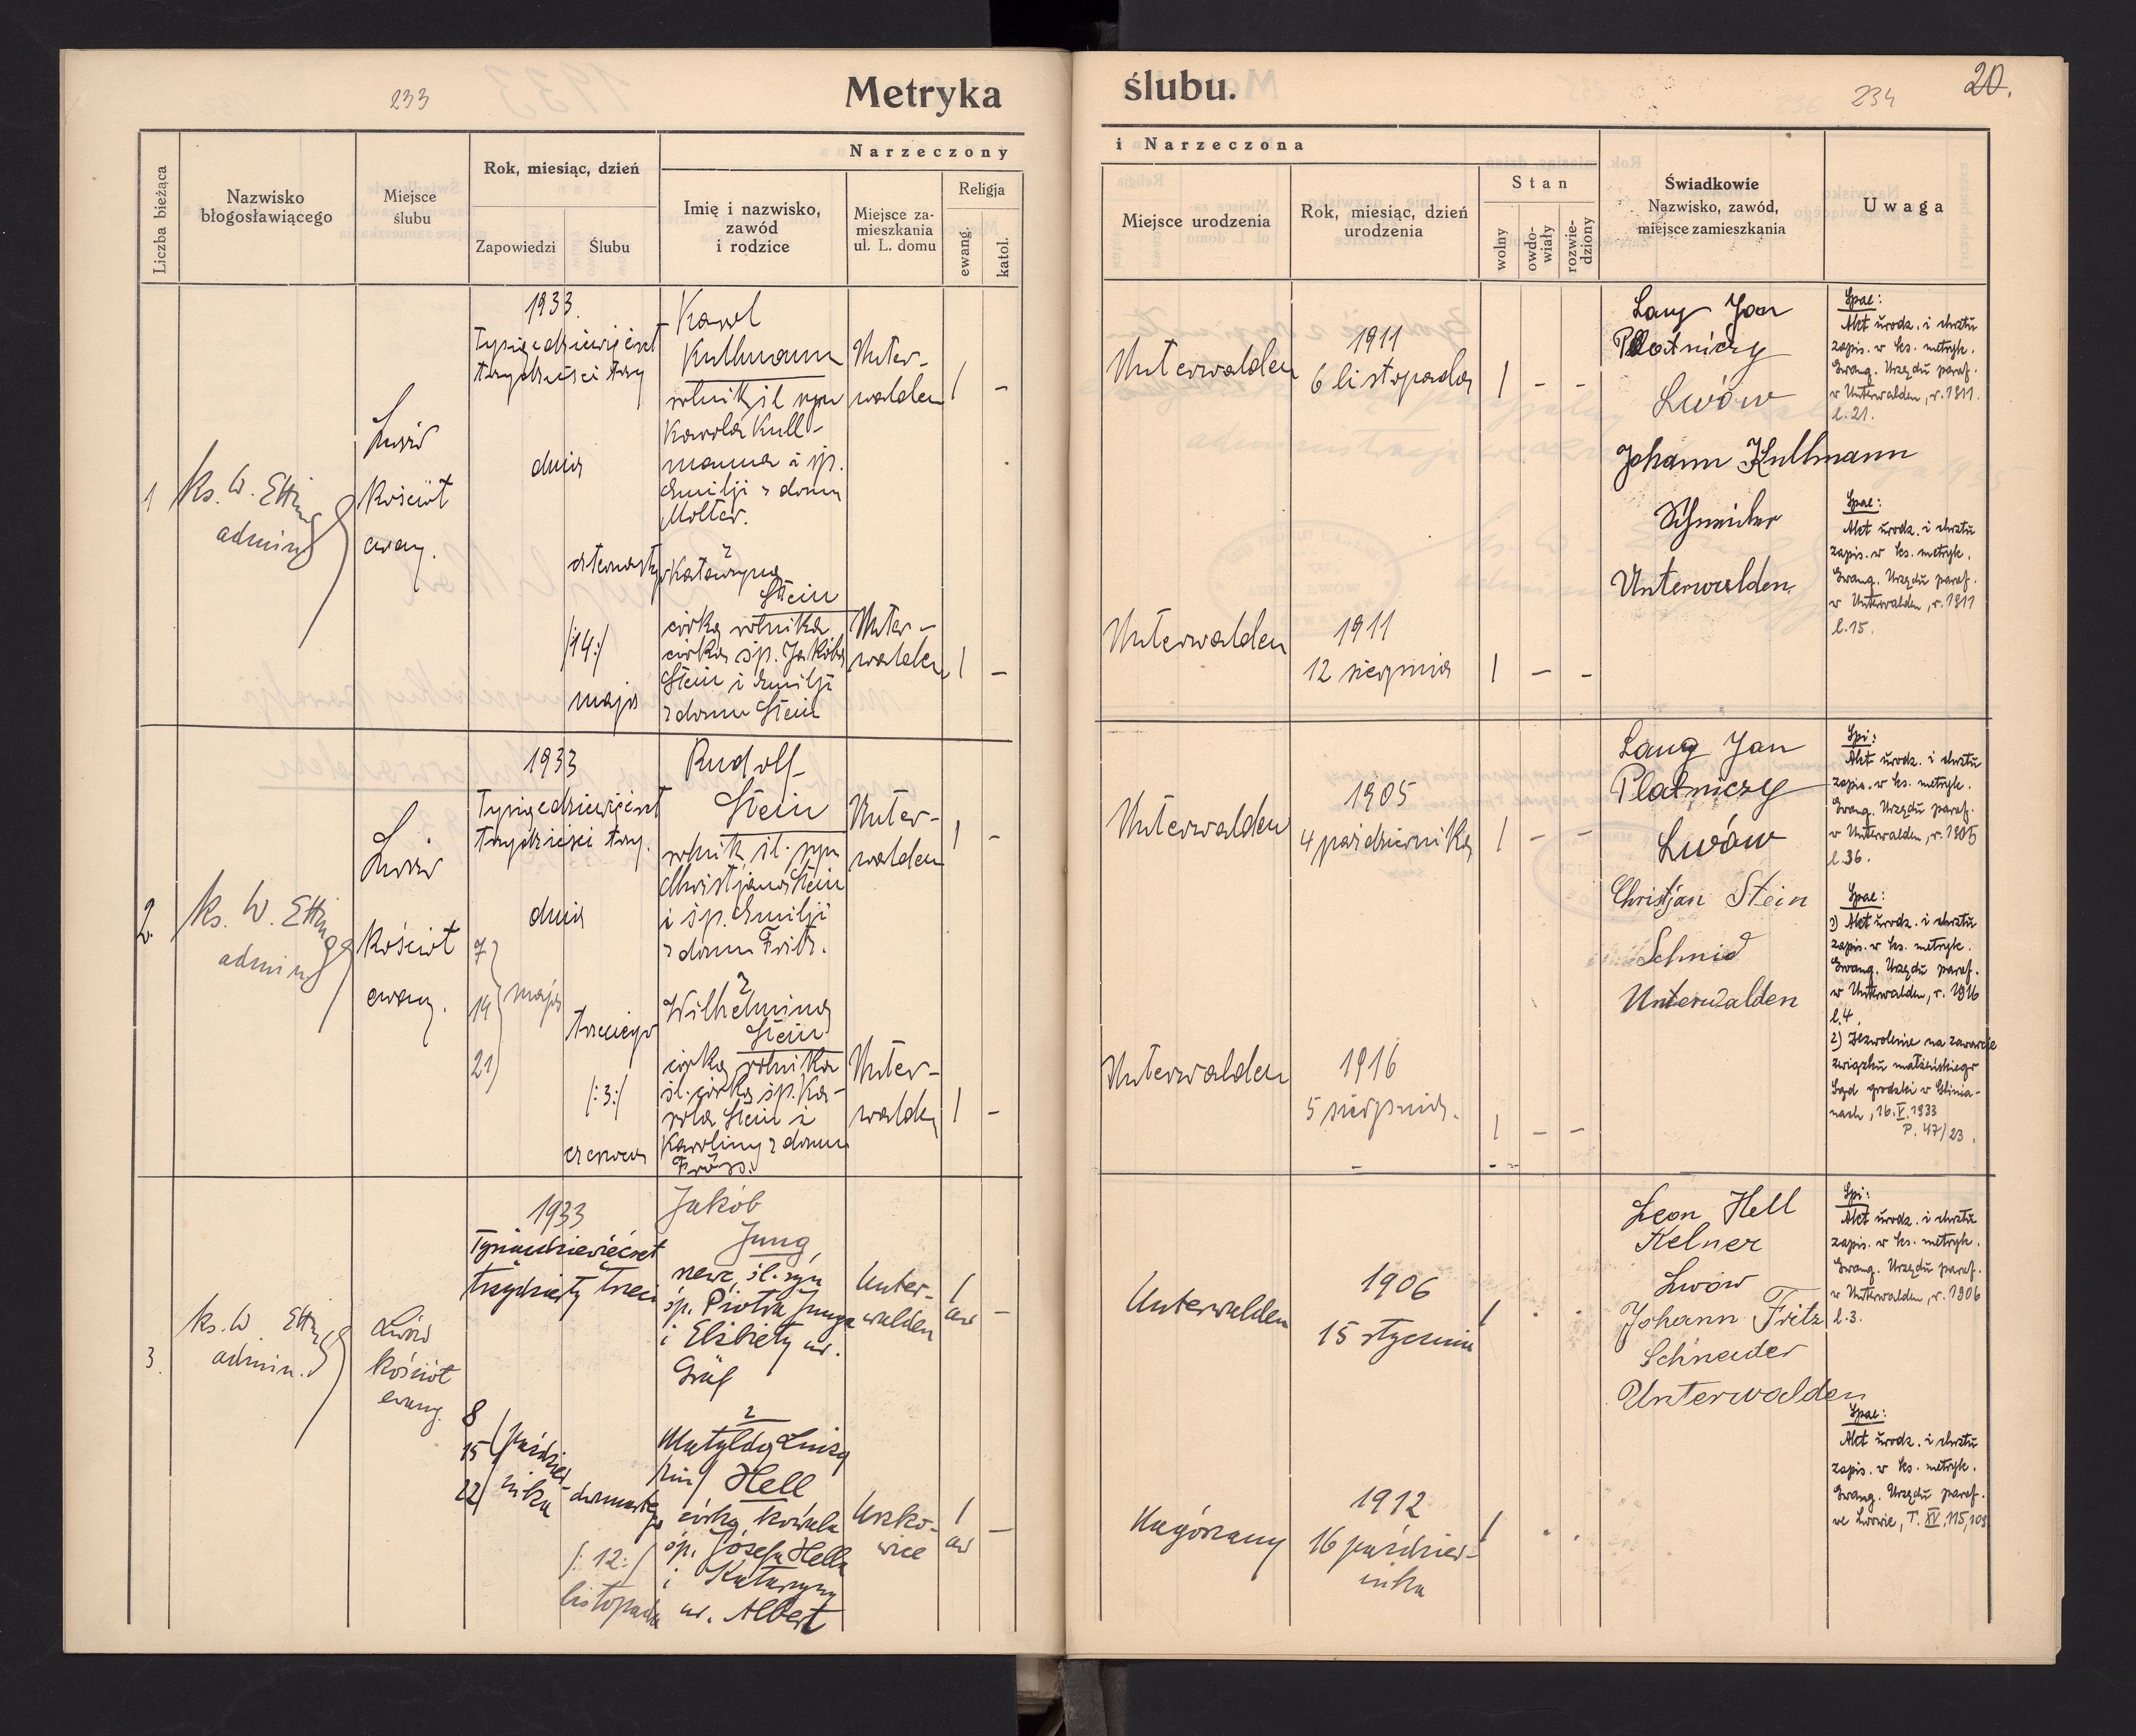 233
Metryka
ślubu.
234
20.
Liczba bieżąca
Nazwisko
błogosławiącego
Miejsce
ślubu
Rok, miesiąc, dzień
Zapowiedzi
Ślubu
Narzeczony
Imię i nazwisko,
zawód
i rodzice
Miejsce za-
mieszkania
ul. L. domu
Religja
ewang.
katol.
i Narzeczona
Miejsce urodzenia
Rok, miesiąc, dzień
urodzenia
Stan
wolny
owdo-
wiały
rozwie-
dziony
Świadkowie
Nazwisko, zawód,
miejsce zamieszkania
Uwaga
1
ks. W. Etting
admin
Lwów
Kościół
ewang.
1933.
Tysiącdziewięćset
trzydzieści trzy
dnia
czternastego
/14:/
maja
Karol
Kullmann
rolnik śl. syn
Karola Kull-
manna i śp.
Emilji z domu
Molter.
Unter-
walden
1 -
z
Katarzyną
Stein
córką rolnika
córka śp. Jakóba
Stein i Emilji
z domu Stein
Unter-
walden
1 -
Unterwalden
1911
6 listopada
1 - -
Unterwalden
1911
12 sierpnia
1 - -
Lang Jan
Płatniczy
Lwów
Johann Kullmann
Schneider
Unterwalden
Spae:
Akt urodz. i chrztu
zapis. w ks. metryk.
Ewang. Urzędu paraf.
w Unterwalden, r. 1911.
l. 21.
Spae:
Akt urodz. i chrztu
zapis. w ks. metryk.
Ewang. Urzędu paraf.
w Unterwalden, r. 1911
l. 15.
2.
ks. W. Etting
admin
Lwów
Kościół
ewang.
1933
Tysiącdziewięćset
trzydzieści trzy.
dnia
7
14 maja
21
trzeciego
/:3:/
czerwca
Rudolf
Stein
rolnik śl. syn
Christjana Stein
i śp. Emilji
z domu Fritz.
Unter-
walden
1 -
z
Wilhelminą
Stein
córką rolnika
śl. córka śp. Ka-
rola Stein i
Karoliny z domu
Unter-
walden
1 -
Unterwalden
1905
4 października
1 - -
Unterwalden
1916
5 sierpnia.
1 - -
Lang Jan
Płatniczy
Lwów
Christjan Stein
Schmid
Unterwalden
Spi:
Akt urodz. i chrztu
zapis. w ks. metryk.
Ewang. Urzędu paraf.
w Unterwalden, r. 1905
l. 36.
Spae:
1) Akt urodz. i chrztu
zapis. w ks. metryk.
Ewang. Urzędu paraf.
w Unterwalden, r. 1916
l. 4.
2) Zezwolenie na zawarcie
związku małżeńskiego
Sąd grodzki w Glinia-
nach, 16. V. 1933
P. 47/23.
3.
ks. W. Etting
admin.
Lwów
kościół
ewang.
1933
Tysiącdziewięćset
trzydziesty trzeci
8
15 paździer-
22 nika
dwunastego
/:12:/
listopada
Jakób
Jung,
śl. syn
śp. Piotra Junga
i Elżbiety ur.
Gräf
Unter-
walden
1
aw -
z
Matyldą Luizą
Hell
córką kowala
śp. Józefa Hella
i Katarzyny
ur. Albert
Uszko-
wice
1
aw -
Unterwalden
1906
15 stycznia
1
Zagórzany
1912
16 paździer-
nika
1
Leon Hell
Kelner
Lwów
Johann Fritz
Schneider
Unterwalden
Spi:
Akt urodz. i chrztu
zapis. w ks. metryk.
Ewang. Urzędu paraf.
w Unterwalden, r. 1906
l. 3.
Spae:
Akt urodz. i chrztu
zapis. w ks. metryk.
Ewang. Urzędu paraf.
we Lwowie, T. XV, 115, 109